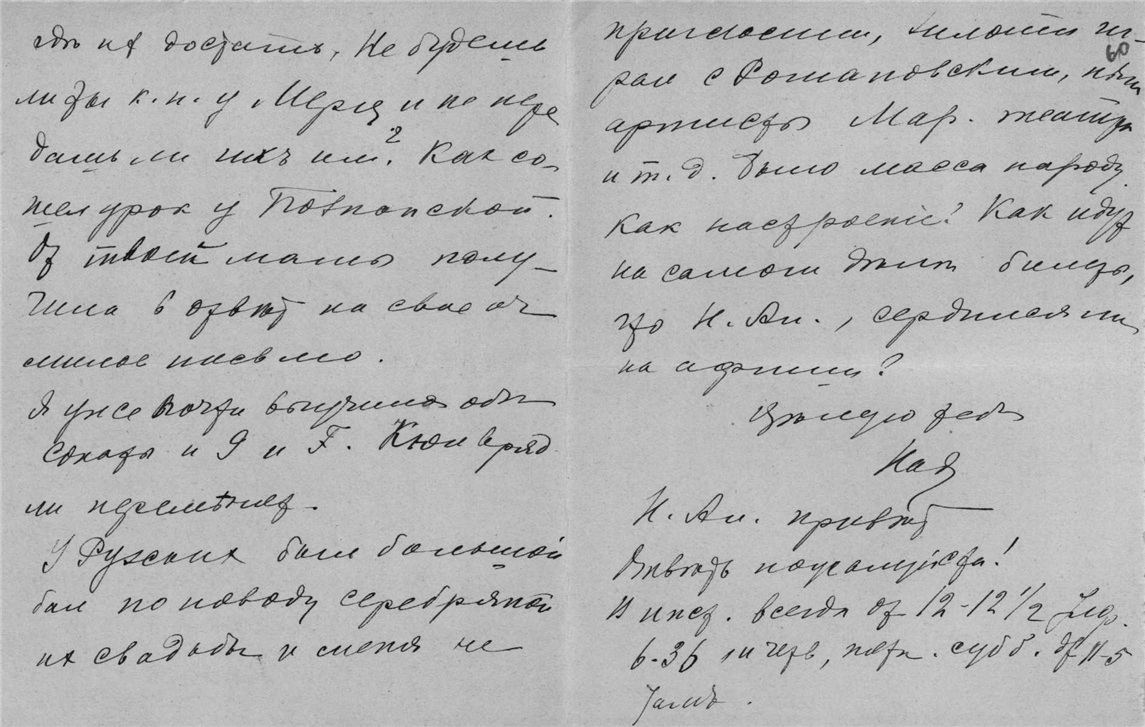 гдѣ их достать, Не будешь
ли ты к.н. у Мерц и не пере
дашь ли ихъ им? Как со
шел урок у Познанской.
От твоей мамы полу-
чила в отвѣт на свое оч
милое письмо.
Я уже почти выучила обѣ
сонаты и Я и Г. Кюи вряд
ли перемѣнит.
У Рузских был большой
бал по поводу серебряной
их свадьбы и меня не
пригласили, Зилоти иг-
60
рал с Романовским, пѣли
артисты Мар. театра
и т.д. Было масса народу
Как настроеніе? Как идут
на самом дѣлѣ билеты,
что Н.Ан., сердился ли
на афиши?
Цѣлую тебя
Надя
Н.Ан. привѣт
Отвѣть пожалуйста!
Я всегда от 12-12 1/2
6-36 и четв, субб. от 11-5